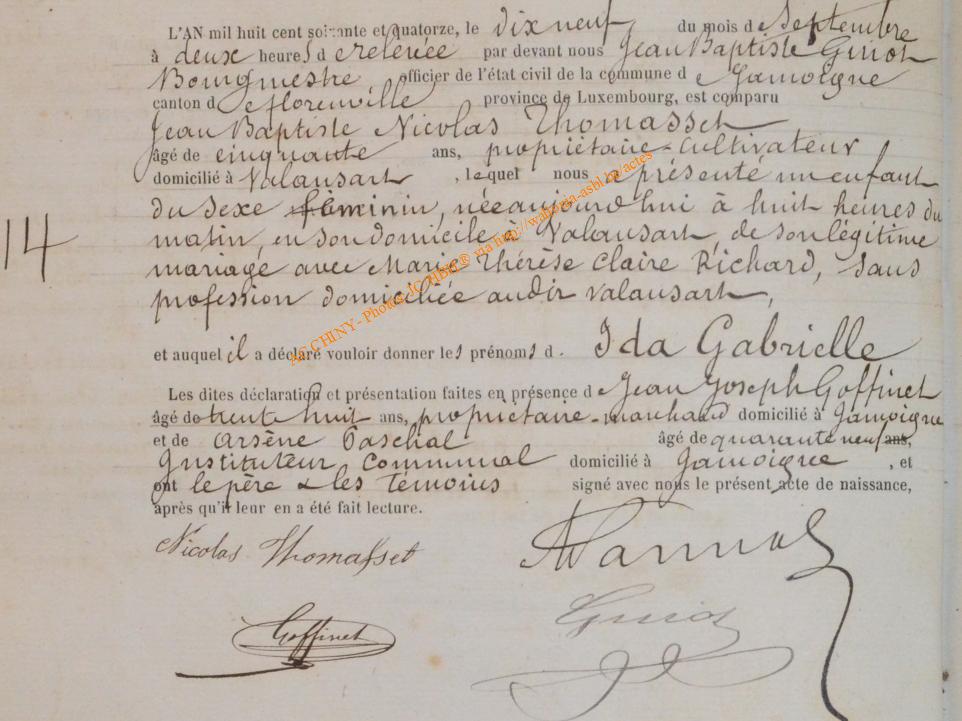 L'AN mil huit cent soixante et quatorze, le dix neuf du mois de Septembre
à deux heures de relevée par devant nous Jean Baptiste Guiot
Bourgmestre officier de l'état civil de la commune de Jamoigne
canton de florenville province de Luxembourg, est comparu
Jean Baptiste Nicolas Thomasset
âgé de cinquante ans, propriétaire-cultivateur
domicilié à Valansart, lequel nous a présenté un enfant
du sexe féminin, née aujourd'hui à huit heures du
14
matin, en son domicile à Valansart, de son légitime
mariage avec Marie Thérèse Claire Richard, sans
profession domiciliée audit valansart,
et auquel il a déclaré vouloir donner les prénoms d. Ida Gabrielle
Les dites déclaration et présentation faites en présence de Jean Joseph Goffinet
âgé de trente huit ans, propriétaire-marchand domicilié à Jamoigne
et de Arsène Paschal âgé de quarante neuf ans,
Instituteur communal domicilié à Jamoigne, et
ont le père & les témoins signé avec nous le présent acte de naissance,
après qu'il leur en a été fait lecture.
Nicolas Thomasset
Goffinet
Guiot
AC CHINY - Photos JC MBE® via http://waboxin-asbl.be/actes